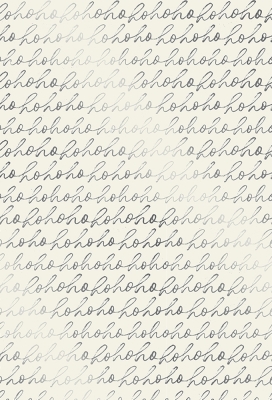 hohoho hohoho hohoho
hohoho hohoho hohoho
hohoho hohoho hohoho
hohoho hohoho hohoho
hohoho hohoho hohoho
hohoho hohoho hohoho
hohoho hohoho hohoho
hohoho hohoho hohoho
hohoho hohoho hohoho
hohoho hohoho hohoho
hohoho hohoho hohoho
hohoho hohoho hohoho
hohoho hohoho hohoho
hohoho hohoho hohoho
hohoho hohoho hohoho
hohoho hohoho hohoho
hohoho hohoho hohoho